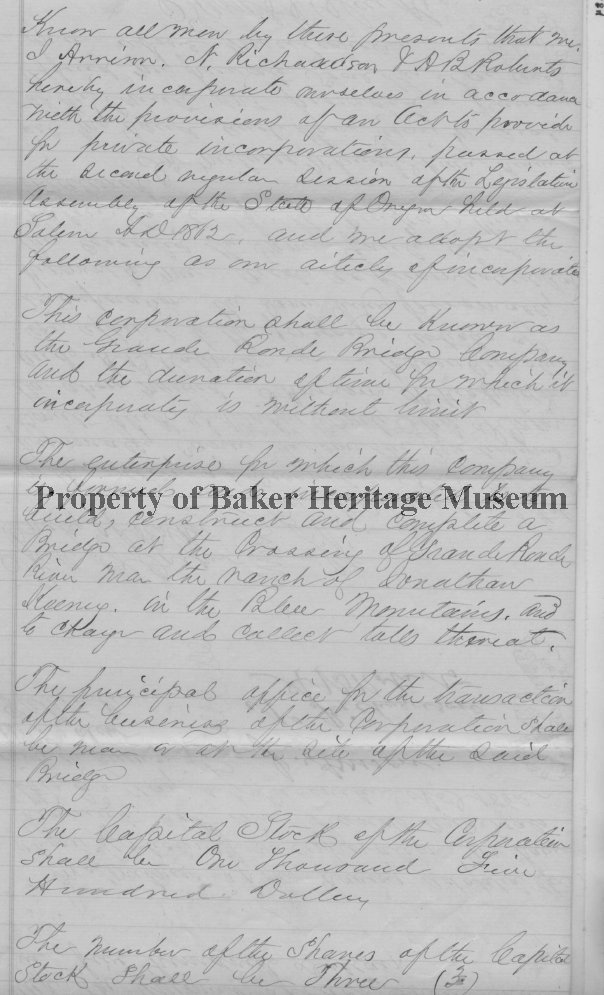 Know all men by these presents that we.
J Arrison. N. Richardson & A B Roberts
hereby incorporate ourselves in accordance
with the provisions of an Act to provide
for private incorporations, passed at
the second regular session of the Legislative
Assembly of the State of Oregon held at
Salem A.D. 1862, and we adopt the
following as our articles of incorporation
This corporation shall be known as
the Grande Ronde Bridge Company
and the duration of time for which it
incorporates is without limit
The enterprise for which this company
is formed
Property of Baker Heritage Museum
build, construct and complete a
Bridge at the Crossing of Grande Ronde
River near the ranch of Jonathan
in the Blue Mountains. and
to charge and collect tolls thereat.
The principal office for the transaction
of the business of the Corporation shall
be near or at the site of the said
Bridge
The Capital Stock of the Corporation
shall be One Thousand Five
Hundred Dollars
The number of the Shares of the Capital
Stock shall be Three (3)